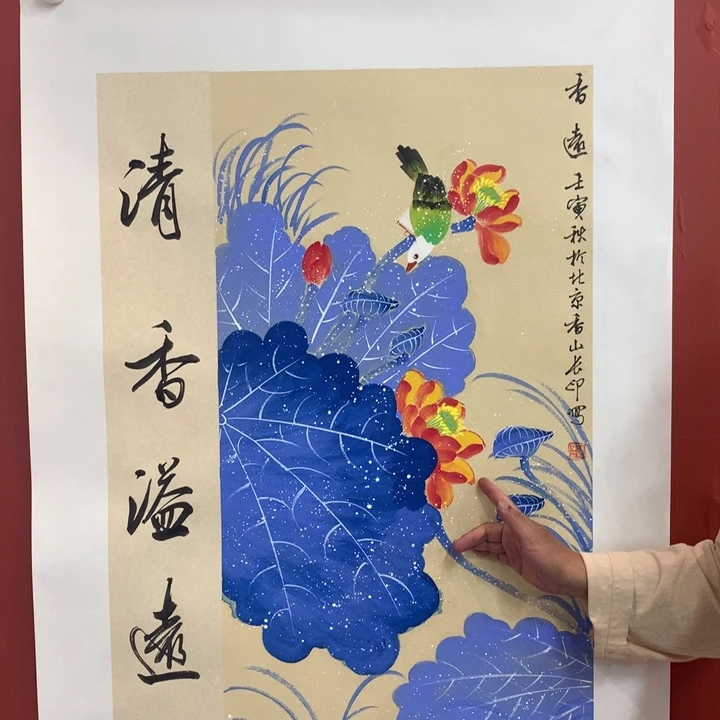 香遠 壬寅秋於北京香山長印寫
清香溢遠